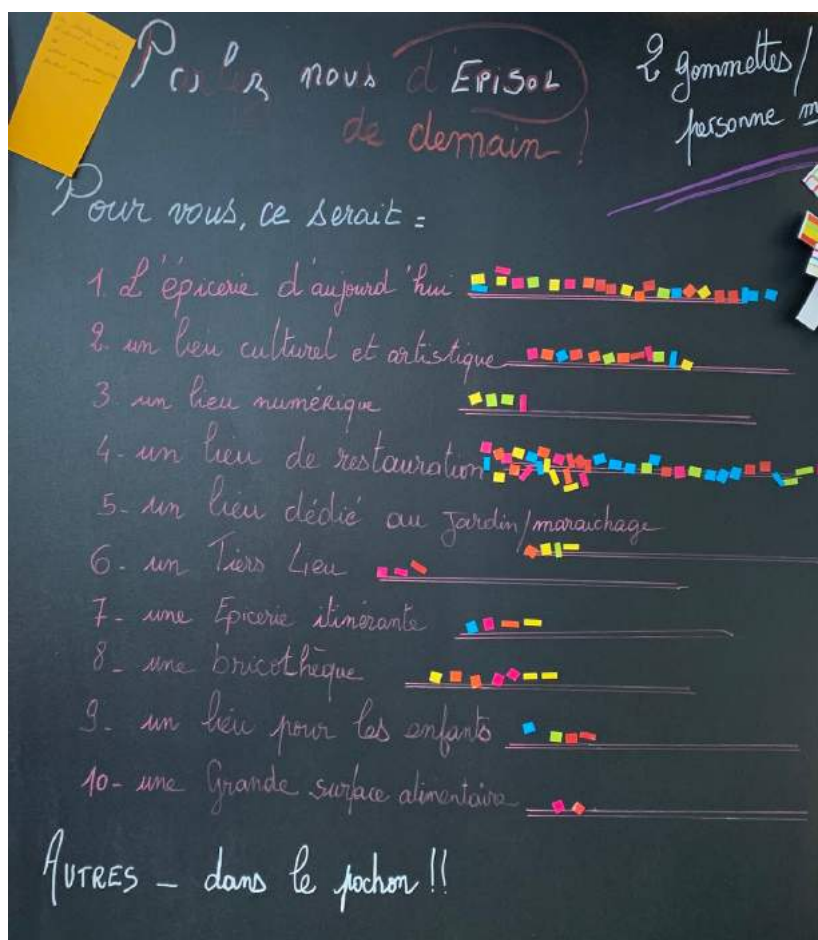 Parlez nous d'EPISOL
de demain !
2 gommettes/
personne
Pour vous, ce serait =
1. L'épicerie d'aujourd'hui
2. un lieu culturel et artistique
3. un lieu numérique
4- un lieu de restauration
5- un lieu dédié au jardin/maraichage
6- un Tiers Lieu
7- une Epicerie itinérante
8- une bricothèque
9- un lieu pour les enfants
10- une Grande surface alimentaire
AUTRES - dans le pochon !!